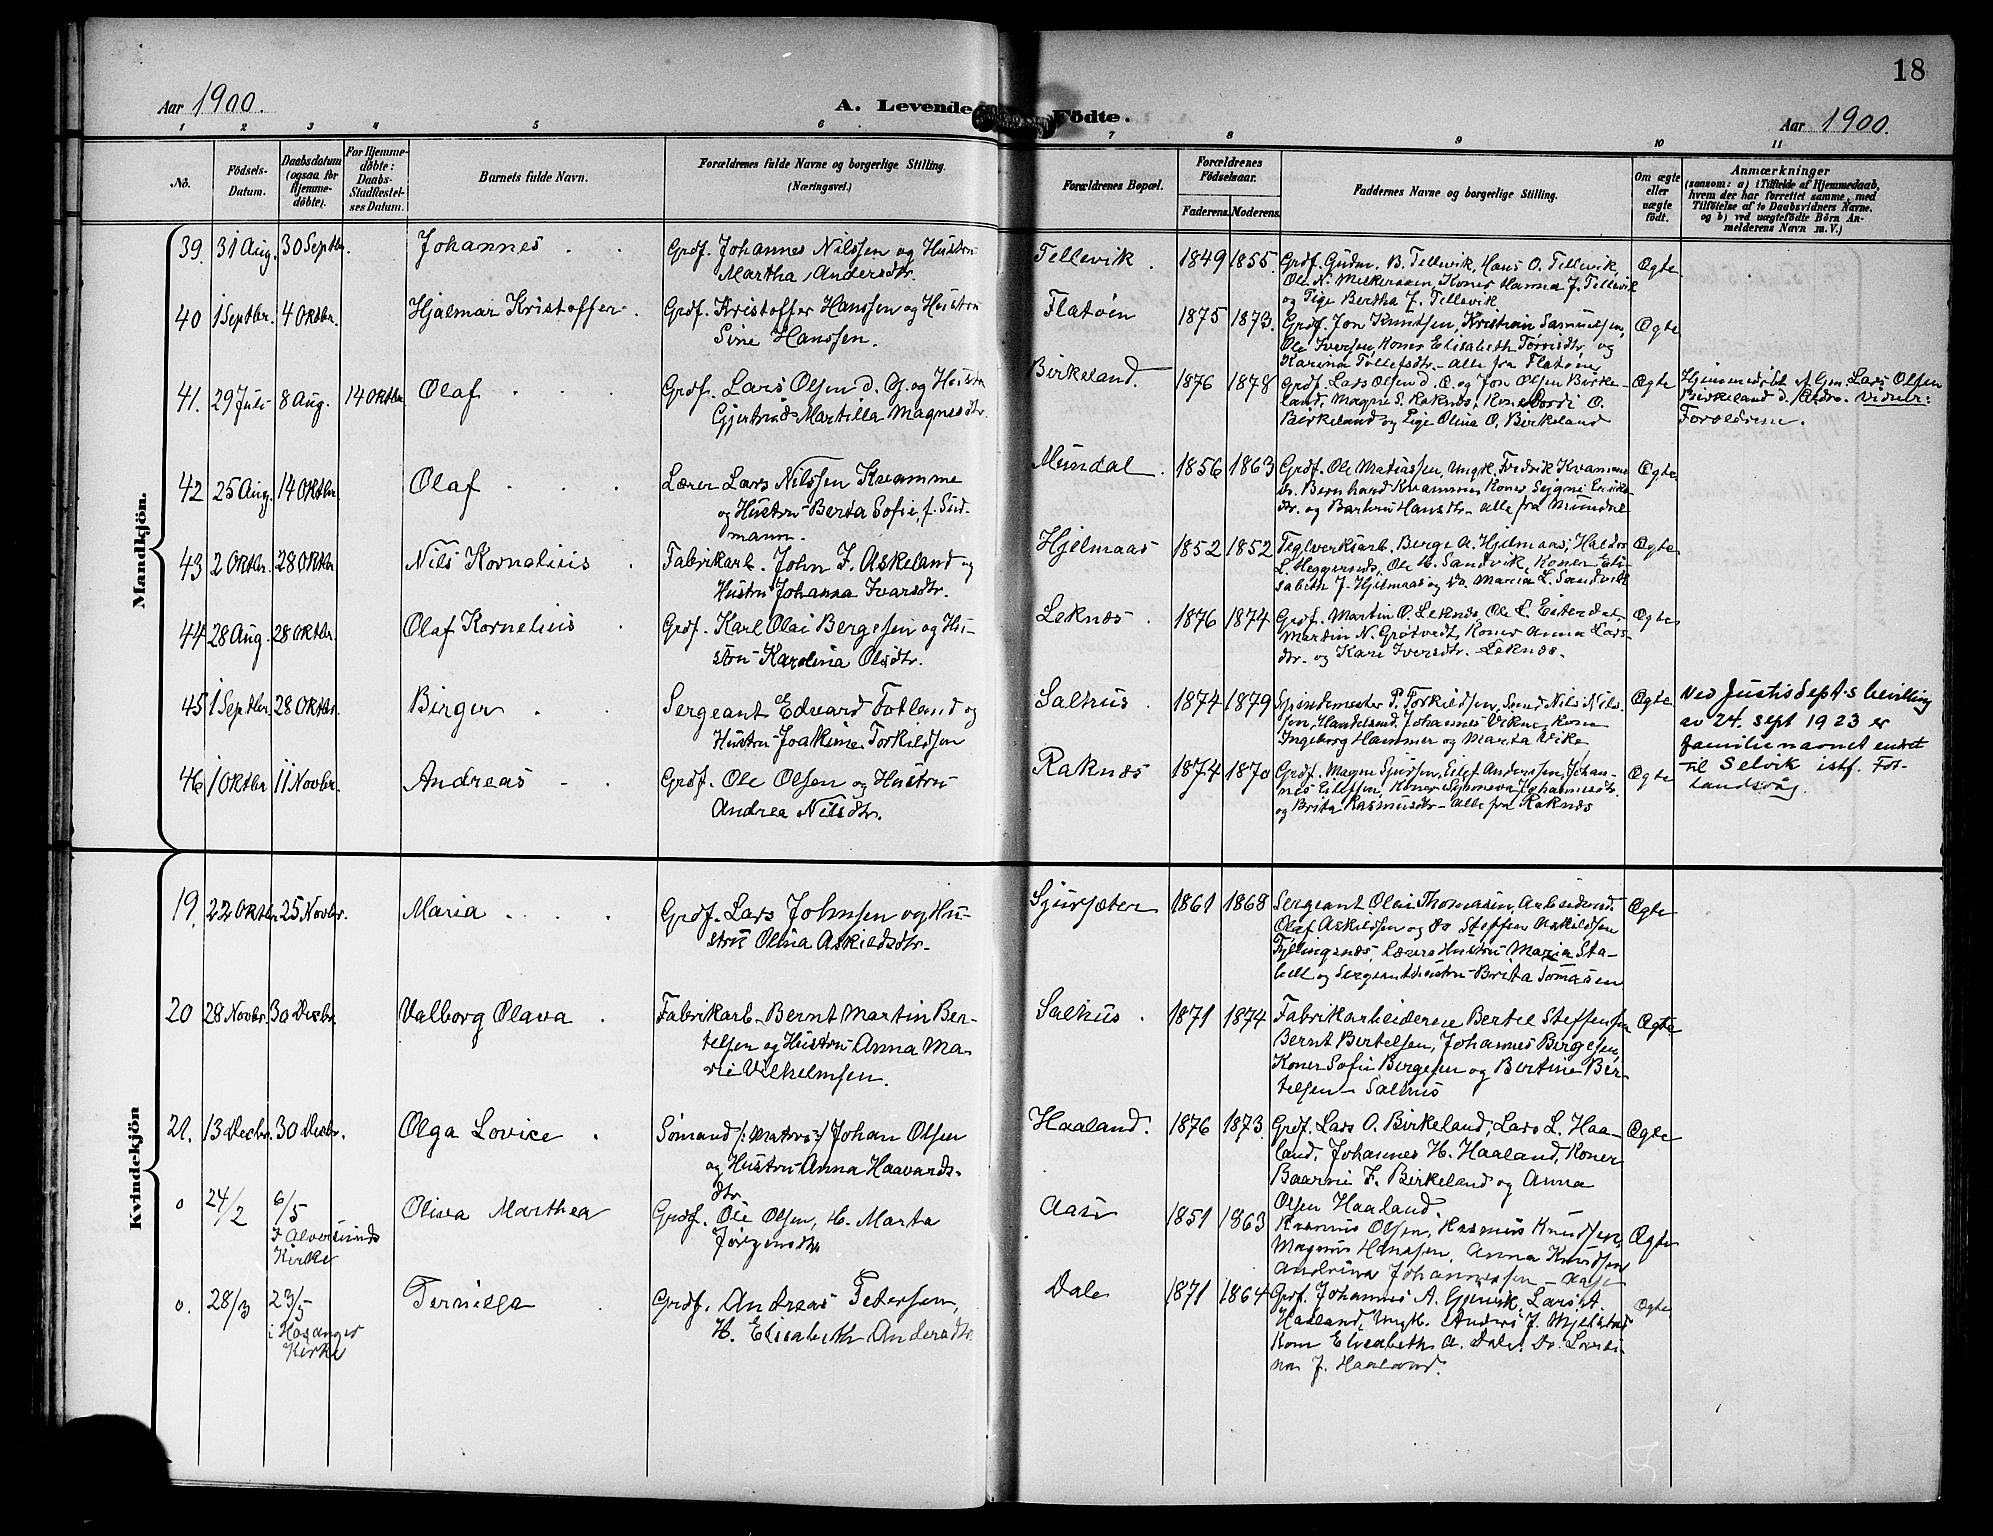 18
Aar 1900.
A. Levende Födte.
Aar 1900.
1 2 3 4 5 6 7 8 9 10 11
No.
Födsels-Datum.
Daabsdatum (ogsaa for Hjemmedöbte).
For Hjemmedöbte: Daabs-Stadfæstelses Datum.
Barnets fulde Navn.
Forældrenes fulde Navne og borgerlige Stilling.
(Næringsvei.)
Forældrenes Bopæl.
Forældrenes Födselsaar.
Faderens. Moderens.
Faddernes Navne og borgerlige Stilling.
Om ægte eller uægte født.
Anmærkninger
(saasom: a) i Tilfælde af Hjemmedaab,
hvem der har forrettet samme, med
Tilföielse af to Daabsvidners Navne,
og b) ved uægtefödte Börn Anmelderens Navn m. V.)
Mandkjön.
39. 31 Aug. 30 Septbr. Johannes Grdf. Johannes Nilssen og Hustru
Martha Andersdtr. Tellevik. 1849 1855. Grdf. Gudm. B. Tellevik, Hans O. Tellevik,
Ole N. Mickelssen Koner Hanna J. Tellevik
og Pige Bertha J. Tellevik Ægte
40 1 Septbr. 4 Oktbr. Hjalmar Kristoffer. Grdf. Kristoffer Hanssen og Hustru
Sine Hanssen. Flatøen 1875 1873. Grdf. Jon Knutsen, Kristian Samuelsen,
Ole Iversen, Koner Elisabeth Tørrisdtr. og
Karina Tollefsdtr. - alle fra Flatøen Ægte
41. 29 Juli 8 Aug. 14 Oktbr. Olaf Grdf. Lars Olsen d. Y. og Hustru
Gjertrud Martilla Magnesdtr. Birkeland. 1876 1878 Grdf. Lars Olsen d. Æ. og Jon Olsen Birke-
land, Magne S. Raknes, Kone Bordi O.
Birkeland og Pige Olina O. Birkeland Ægte
Hjemmedøbt af Gm. Lars Olsen
Birkeland d. Ældre. Vidner:
Forældrene.
42 25 Aug. 14 Oktbr. Olaf Lærer Lars Nilssen Kvamme
og Hustru Berta Sofie, f. Sud-
mann. Mundal. 1856 1863 Grdf. Ole Matiassen, Ungk. Fredrik Kvamme
do. Bernhard Kvamme, Koner Signi Eriks-
dtr. og Barbru Hansdtr. - alle fra Mundal Ægte
43 2 Oktbr. 28 Oktbr Nils Kornelius Fabrikarb. John J. Askeland og
Hustru Johanna Ivarsdtr. Hjelmaas 1852 1852 Teglverksarb. Berge A. Hjelmaas, Haldor
L. Heggernes, Ole H. Sandvik, Koner Eli-
sabeth J. Hjelmaas og do. Maria L. Sandvik Ægte
44 28 Aug. 28 Oktbr. Olaf Kornelius Grdf. Karl Olai Bergesen og Hu-
stru Karolina Olsdtr. Leknes. 1876 1874 Grdf. Martin O. Leknes, Ole L. Eiterdal,
Martin N. Grøtvedt, Koner Anna Lars-
dtr. og Kari Iversdtr. Leknes. Ægte
45 1 Septbr 28 Oktbr. Birger Sergeant Edvard Fotland og
Hustru Joakime Torkildsen Salhus. 1874 1879 Spindemester P. Torkildsen, Smed Nils Nils-
sen, Handelsmd. Johannes Vikne, Kone
Ingeborg Hammer og Marta Vike Ægte
Ved Justisdept-s bevilling
av 24. sept 1923 er
familienavnet endret
til Selvik istf. Fot-
landsvåg.
46 1 Oktbr 11 Novbr. Andreas Grdf. Ole Olsen og Hustru
Andrea Nilsdtr. Raknes 1874 1870 Grdf. Magne Sjursen, Eilef Anderssen, Johan-
nes Eilefsen, Koner Synneva Johannesdtr.
og Brita Rasmusdtr - alle fra Raknes Ægte
Kvindekjön
19. 22 Oktbr. 25 Novbr. Maria Grdf. Lars Johnsen og Hu-
stru Olina Askildsdtr. Sjursæter 1861 1868 Sergeant Olai Thomasen, Arbeidsmd.
Olaf Askildsen og do Steffen Askildsen
Fyllingsnes, Lærer Hustru Maria Sta-
bell og Sergeanthustru Brita Tomasen Ægte
20 28 Novbr. 30 Decbr. Valborg Olava Fabrikarb. Bernt Martin Ber-
telsen og Hustru Anna Ma-
rie Vilhelmsen. Salhus. 1871 1874 Fabrikarbeiderne Bertel Steffensen
Bernt Bertelsen, Johannes Bergesen,
Koner Sofie Bergesen og Bertine Ber-
telsen - Salhus Ægte
21. 13 Decbr. 30 Decbr. Olga Lovice Sømand /: Matros :/ Johan Olsen
og Hustru Anna Haavards-
dtr. Haaland. 1876 1873. Grdf. Lars O. Birkeland, Lars L. Haa-
land, Johannes H. Haaland, Koner
Baarni J. Birkeland og Anna
Olsen Haaland. Ægte
o 24/2 6/5 I Alversunds Kirke Oliva Marthea Grdf. Ole Olsen, H. Marta
Jørgensdtr Aase 1851 1863 Rasmus Olsen, Rasmus Knudsen,
Magnus Hanssen, Anna Knudsen
Andrina Johannessen - Aase Ægte
o. 28/3 23/5 i Hosanger Kirke Pernilla Grdf. Andreas Petersen,
H. Elisabeth Andersdtr. Dale 1871 1864 Grdf. Johannes A. Gjervik, Lars A.
Haaland, Ungk. Anders J. Mjelstad
Kone Elisabeth A. Dale. Do.
J. Haaland. Ægte